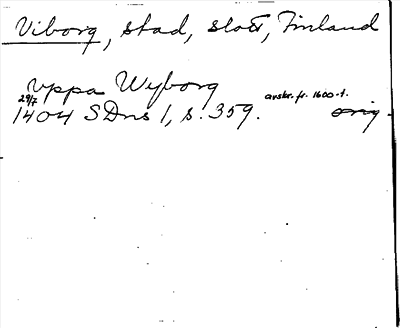 Viborg, stad, slott, Finland
uppa Wyborg
29/7 avskr. fr. 1600-t.
1404 SDns 1, s. 359. orig